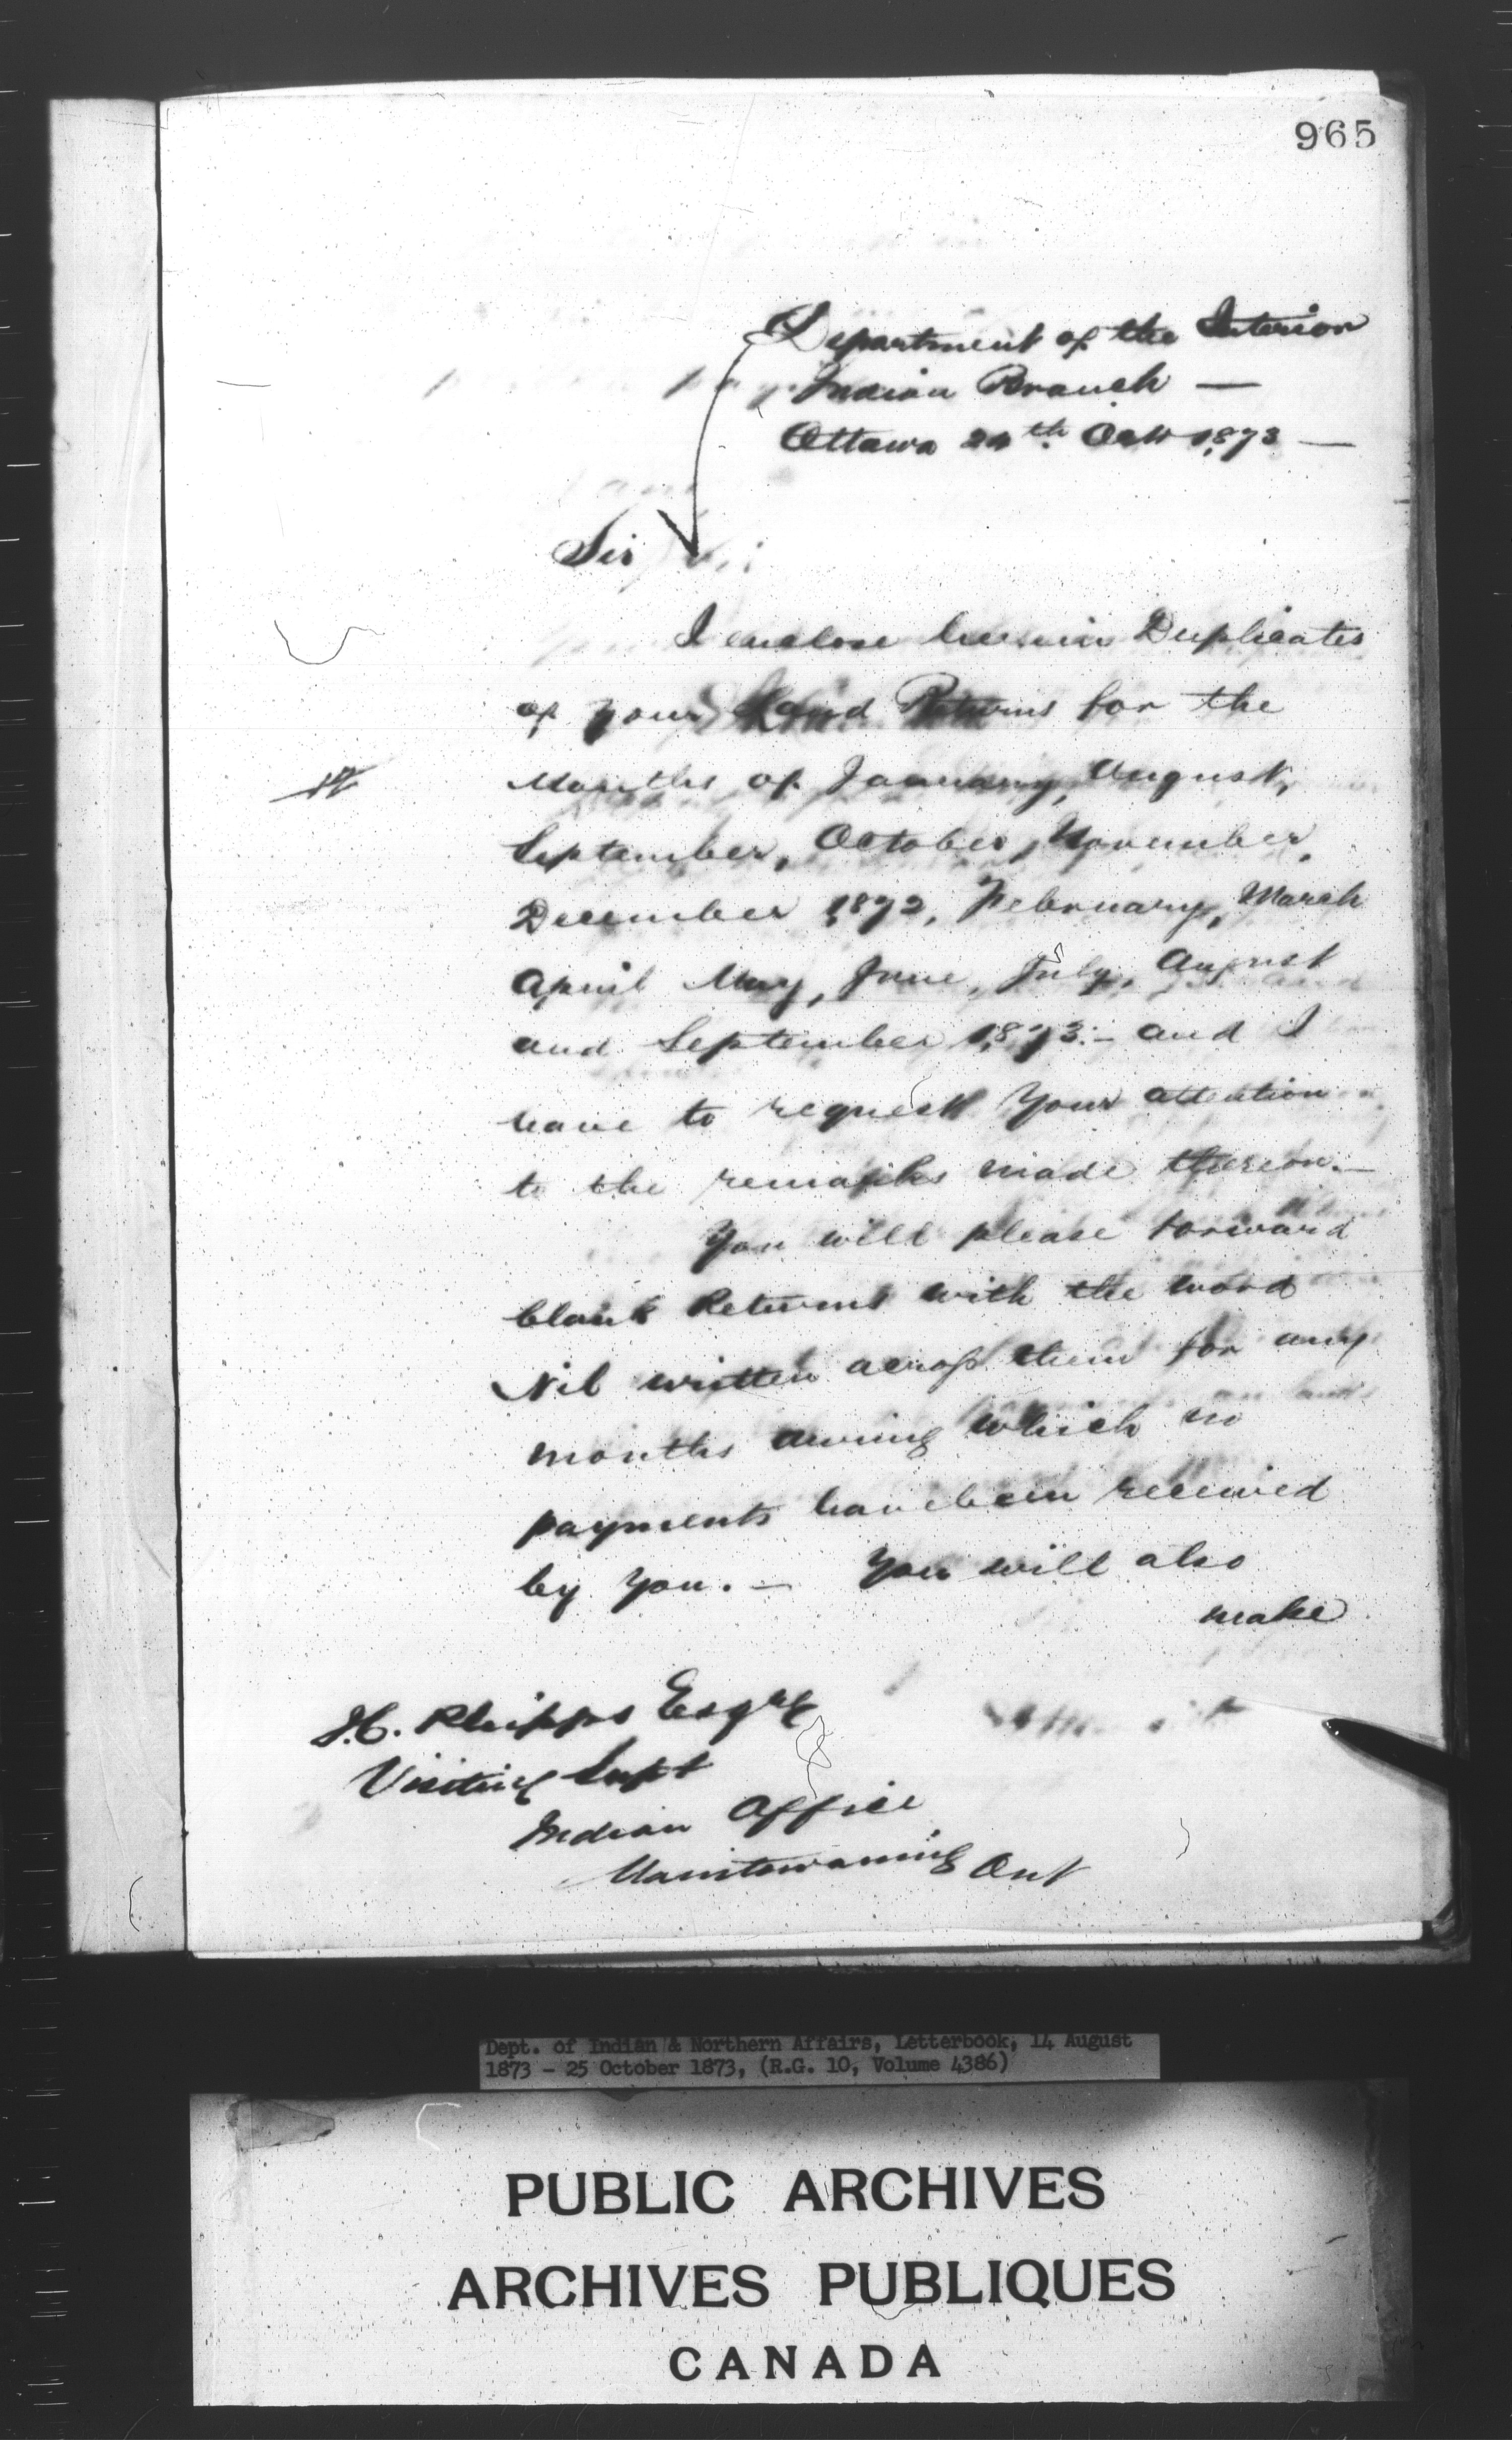 965
Department of the Interior
Indian Branch —
Ottawa 24th Oct 1873 —
Sir
I enclose herein Duplicates
of your Land Returns for the
Months of January, August,
September, October, November,
December 1872, February, March
April May, June, July, August
and September 1873:- and I
have to request your attention
to the remarks made thereon.—
You will please forward
blank Returns with the word
Nil written across them for any
months during which no
payments have been received
by you. — You will also
make
J.C. Phipps Esqre
Visiting Supt
Indian Office
Manitowaning Ont
Dept. of Indian & Northern Affairs, Letterbook, 14 August
1873 - 25 October 1873, (R.G. 10, Volume 4386)
PUBLIC ARCHIVES
ARCHIVES PUBLIQUES
CANADA